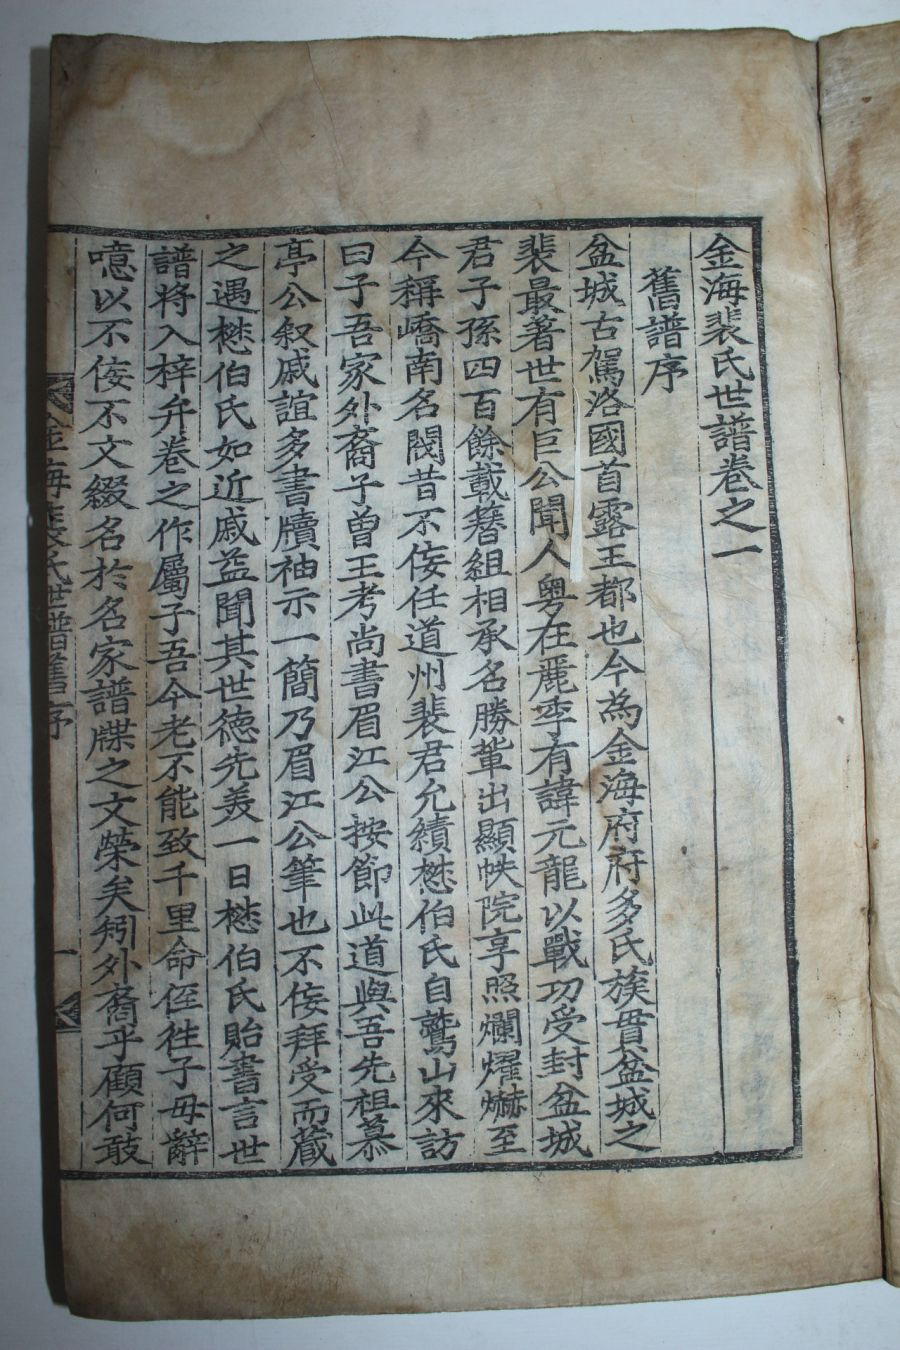 金海裴氏世譜卷之一
舊譜序
盆城古駕洛國首露王都也今為金海府府多氏族貫盆城之
裴最著世有巨公聞人粤在麗季有諱元龍以戰功受封盆城
君子孫四百餘載簪組相承名勝輩出顯帙院享照爛燿爀至
今稱嶠南名閥昔不侫任道州裴君允績懋伯氏自鷲山來訪
曰子吾家外裔子曾王考尚書眉江公按節此道與吾先祖慕
亭公叙戚誼多書牘袖示一簡乃眉江公筆也不侫拜受而藏
之遇懋伯氏如近戚益聞其世德先美一日懋伯氏貽書言世
譜將入梓弁卷之作屬子吾今老不能致千里命侄徃子毋辭
噫以不侫不文綴名於名家譜牒之文榮矣矧外裔乎顧何敢
金海裴氏世譜舊序
一